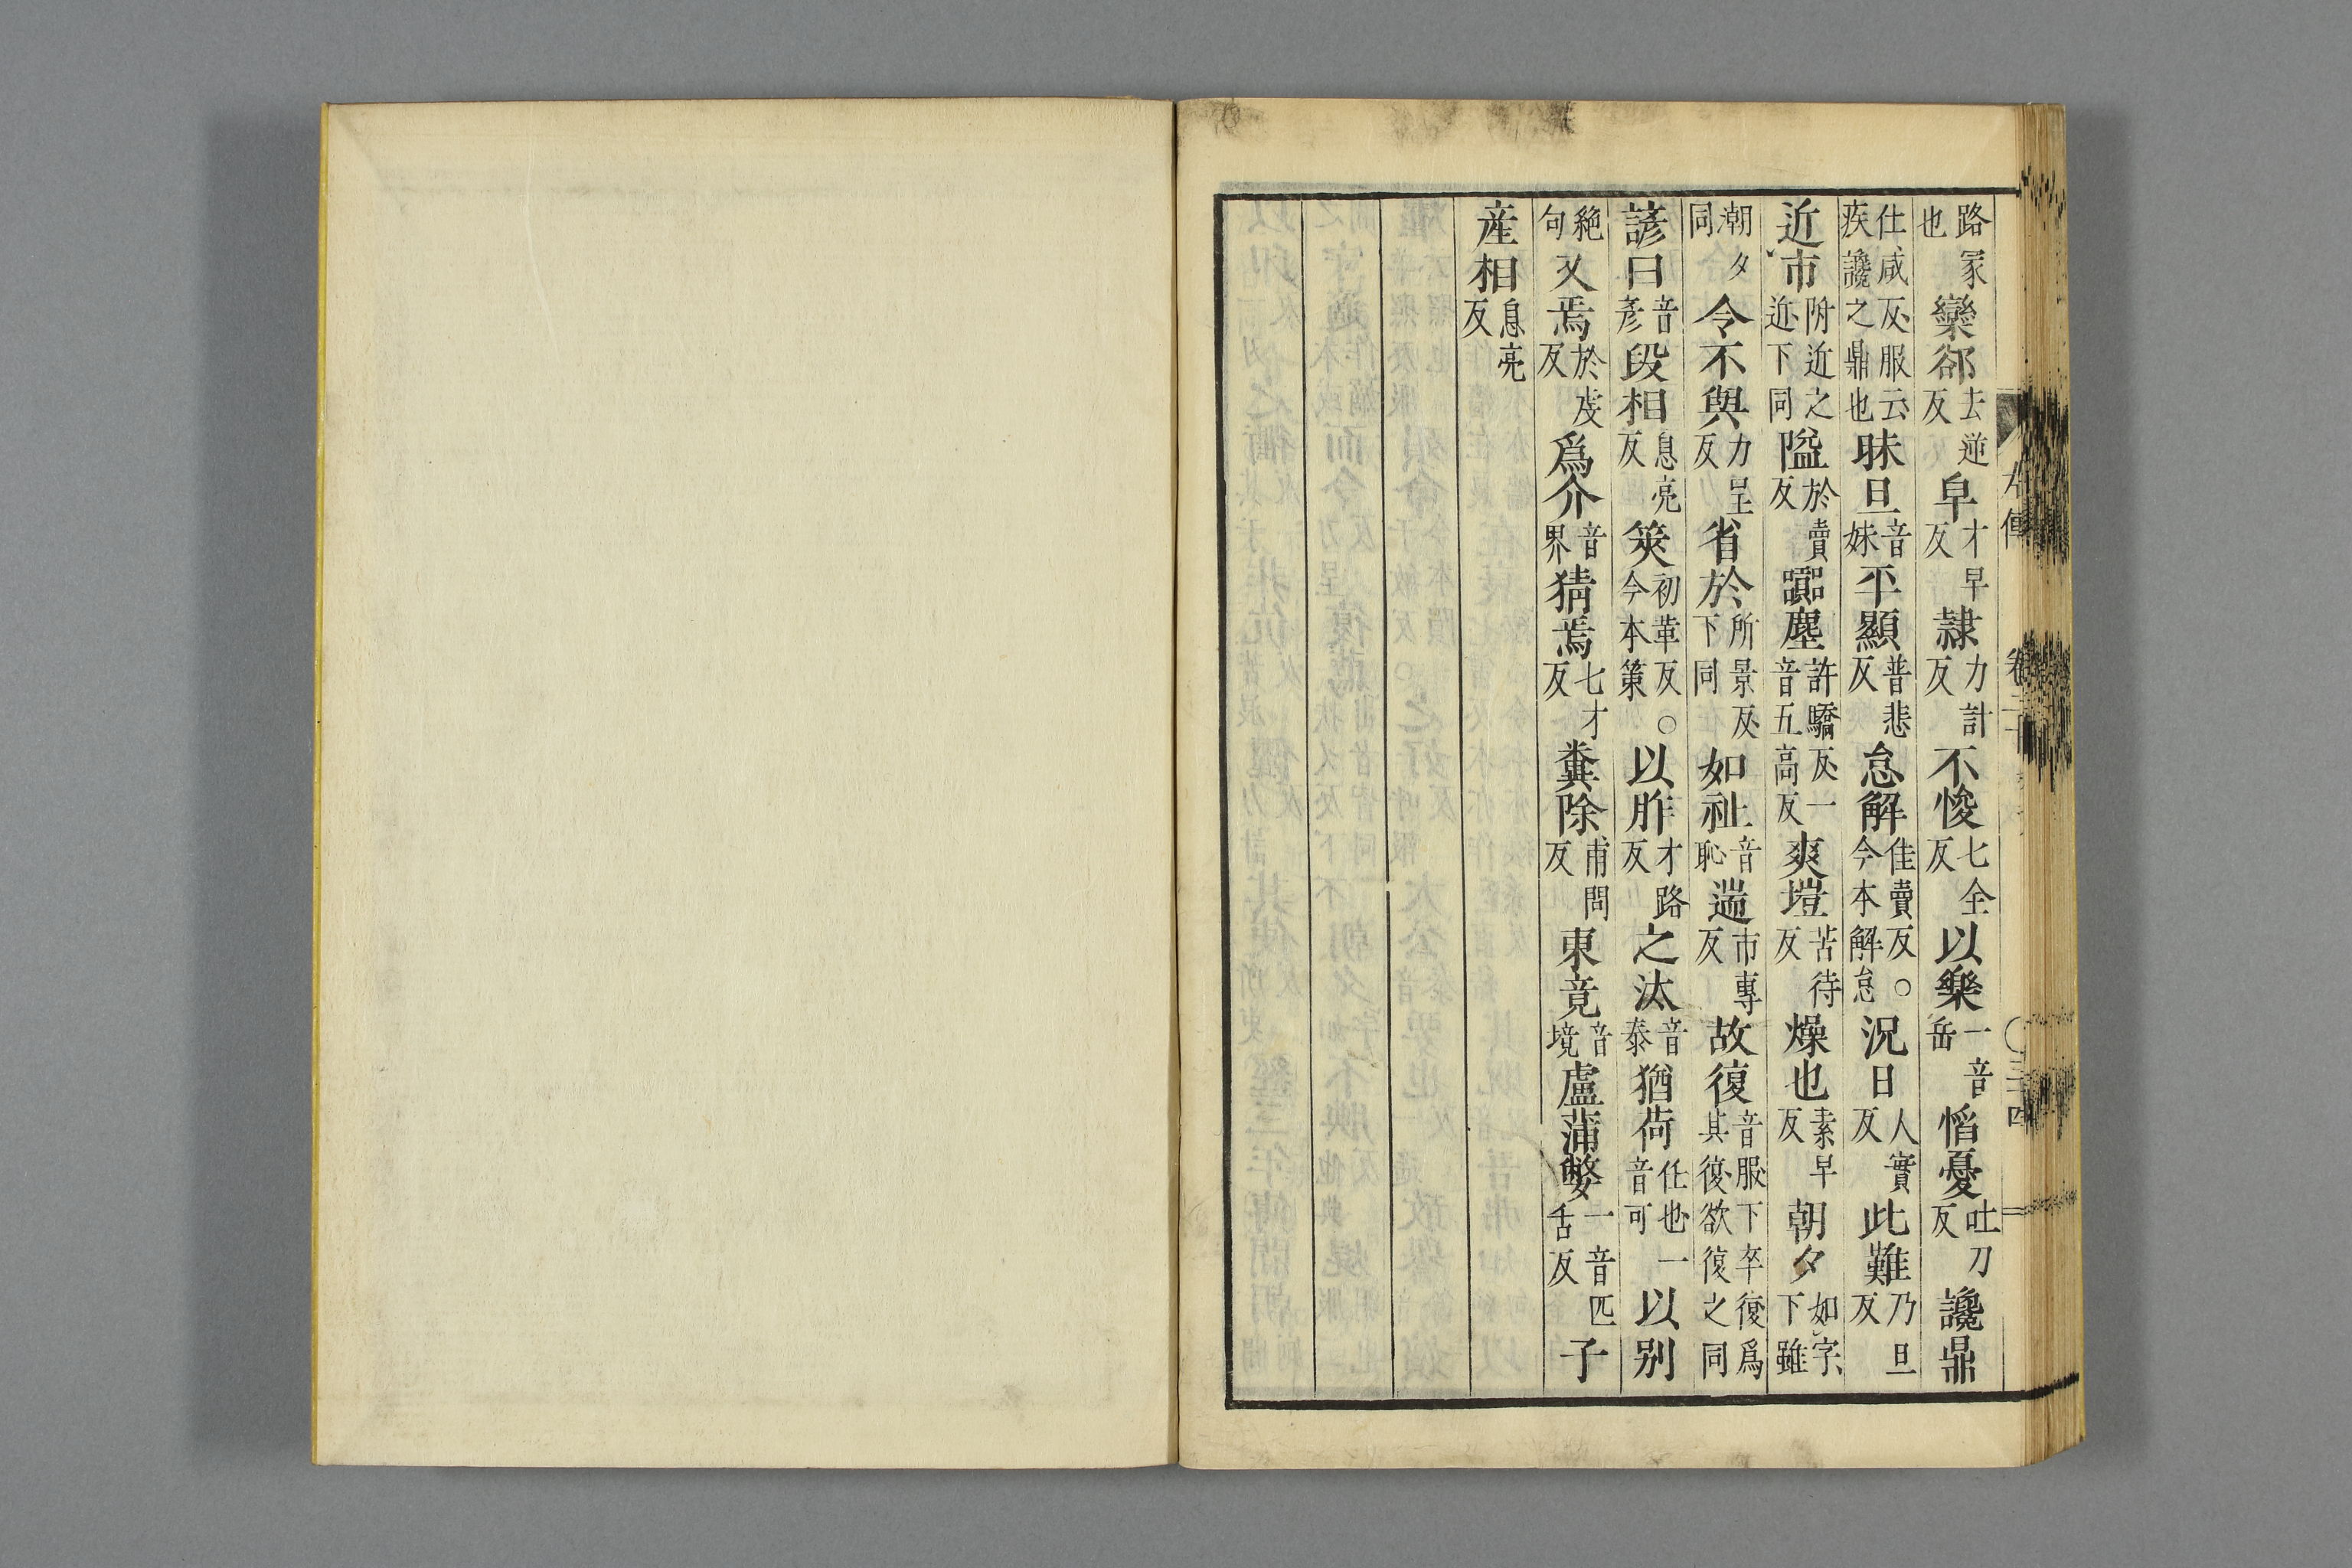 路冢也欒郤去逆反皁才早反隸力計反不悛七全反以樂一音岳慆憂吐刀反讒鼎
仕咸反服云疾讒之鼎也昧旦音妹丕顯普悲反怠解佳賣反○今本解怠況日人實反此難乃旦反
近市附近之近下同隘於賣反嚻塵許驕反一音五高反爽塏苦待反燥也素早反朝夕如字下雖
朝夕同令不與力呈反省於所景反下同如祉音恥遄市專反故復音服下卒復爲其復欲復之同
諺曰音彥段相息亮反筴初革反○今本策以胙才路反之汰音泰猶荷任也一音可以別
絶句又焉於虔反爲介音界猜焉七才反糞除甫問反東竟音境盧蒲嫳一音匹舌反子
產相息亮反